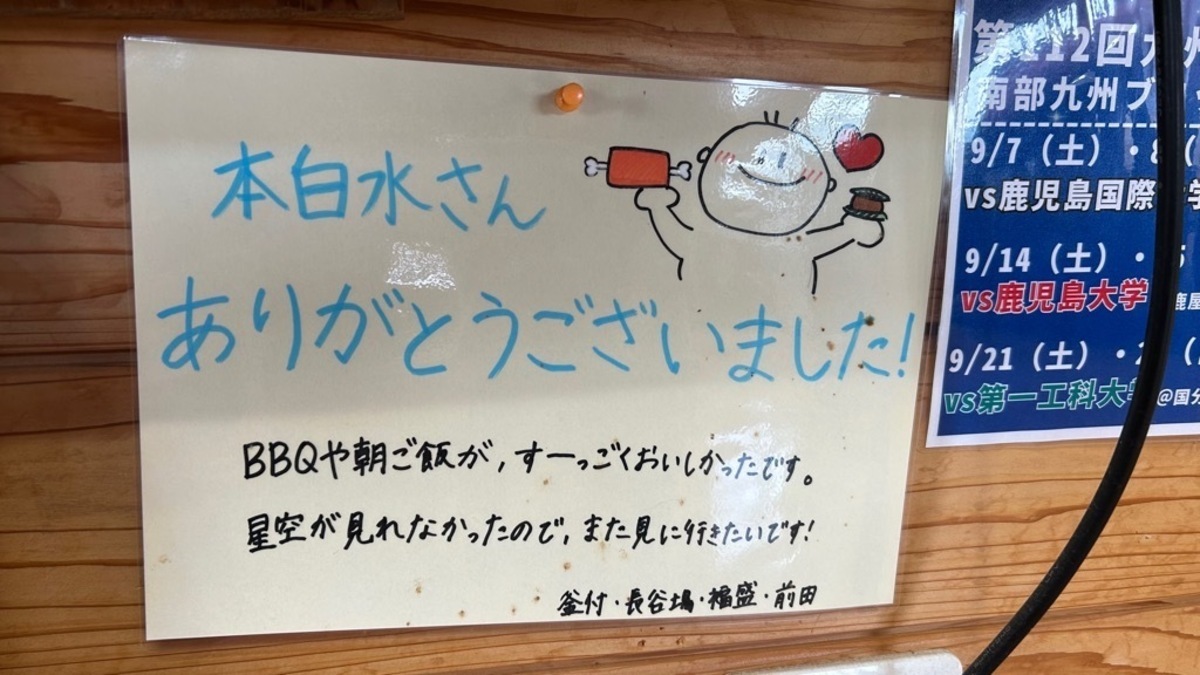 本白水さん
ありがとうございました!
BBQや朝ご飯が,すーっごくおいしかったです。
星空が見れなかったので,また見に行きたいです!
釜付・長谷場・福盛・前田
第112回九州
南部九州ブ
9/7(土)・8(
vs鹿児島国際大学
9/14(土)・
vs鹿児島大学
9/21(土)・2
vs第一工科大学 @国分